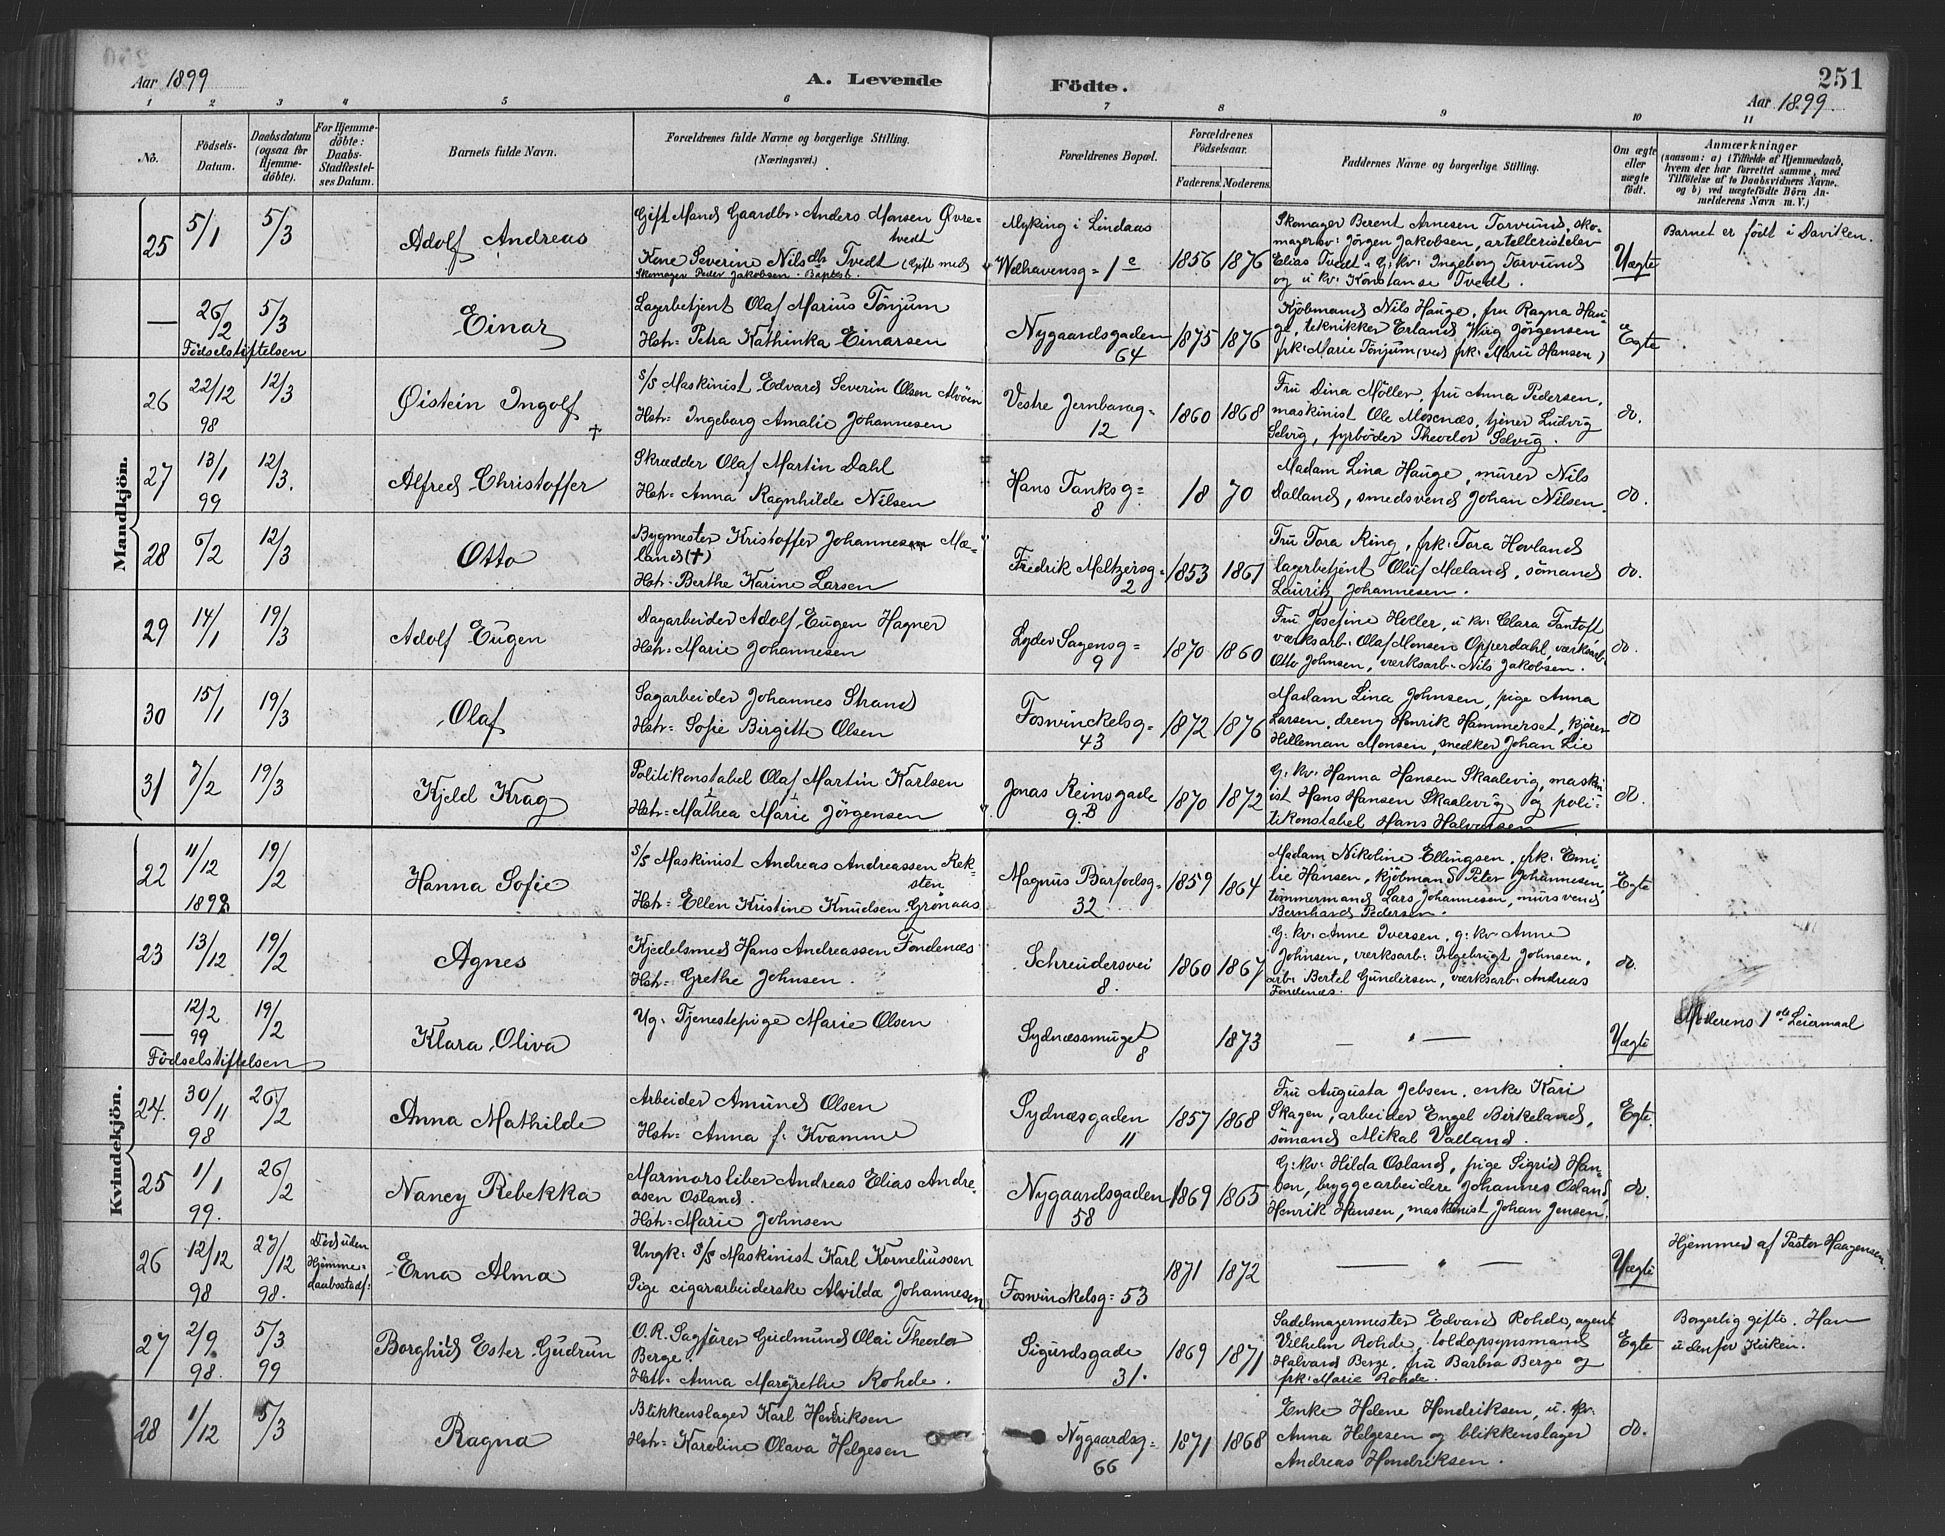 Aar 1899
A. Levende
Födte.
251
Aar 1899.
1 2 3 4 5 6 7 8 9 10 11
No.
Födsels-
Datum.
Daabsdatum
(ogsaa for
Hjemme-
döbte).
For Hjemme-
döbte:
Daabs-
Stadfæstel-
ses Datum.
Barnets fulde Navn.
Forældrenes fulde Navne og borgerlige Stilling.
(Næringsvei.)
Forældrenes Bopæl.
Forældrenes
Födselsaar.
Faderens. Moderens.
Faddernes Navne og borgerlige Stilling.
Om ægte
eller
uægte
födt.
Anmærkninger
(saasom: a) i Tilfælde af Hjemmedaab,
hvem der har forrettet samme, med
Tilföielse af to Daabsvidners Navne,
og b) ved uægtefödte Börn An-
melderens Navn m. V.)
Mandkjön.
25
5/1
5/3
Adolf Andreas
Gift Mand Gaardbr. Anders Monsen Øvre-
tvedt
Kone Severine Nilsdtr Tvedt (Gift med
Skomager Peder Jakobsen. Baptist.
Myking i Lindaas
Welhavensg= 1c
1856 1876
Skomager Berent Arnesen Tarvund, sko-
magersv: Jörgen Jakobsen, artelleristelev
Elias Tvedt, G: kv: Ingeborg Tarvund
og u. kv: Konstanse Tvedt.
Uægte
Barnet er född i Daviken.
—
26/2
5/3
Födselstiftelsen
Einar
Lagerbetjent Olaf Marius Tönjum
Hstr= Petra Kathinka Einarsen
Nygaardsgaden
64
1875 1876
Kjöbmand Nils Hauge, fru Ragna Hau-
ge, teknikker Erland Wiig Jörgensen
frk: Marie Tönjum (ved frk: Marie Hansen)
Egte
26
22/12
98
12/3
Øistein Ingolf
+
s/s Maskinist Edvard Severin Olsen Alvöen
Hstr= Ingeborg Amalie Johannesen
Vestre Jernbaneg=
12
1860 1868
Fru Dina Möller, fru Anna Pedersen,
maskinist Ole Mosenæs, tjener Ludvig
Selvig, fyrböder Theodor Selvig.
do.
27
13/1
99
12/3.
Alfred Christoffer
Skrædder Olaf Martin Dahl
Hstr= Anna Ragnhilde Nilsen
Hans Tanksg=
8
18 70
Madam Lina Hauge, murer Nils
Dalland, smedsvend Johan Nilsen.
do.
28
6/2
12/3
Otto
Bygmester Kristoffer Johannesen Mæ-
land (†)
Hstr= Berthe Karine Larsen
Fredrik Meltzersg=
2
1853 1861
Fru Tora Ring, frk: Tora Hovland
lagerbetjent Oluf Mæland, sömand
Lauritz Johannesen.
do.
29
14/1
19/3
Adolf Eugen
Dagarbeider Adolf Eugen Hagner
Hstr= Marie Johannesen
Lyder Sagensg=
9
1870 1860
Fru Josefine Heller, u. kv: Clara Fantoft
værksarb: Olaf Monsen Opperdahl, værksarb.
Otto Johnsen, værksarb: Nils Jakobsen.
do.
30
15/1
19/3
Olaf
Sagarbeider Johannes Strand
Hstr= Sofie Birgitte Olsen
Foswinckelsg=
43
1872 1876
Madam Lina Johnsen, pige Anna
Larsen, dreng Henrik Hammerset, kjörer
Hilleman Monsen, snedker Johan Lie
do
31
7/2
19/3
Kjeld Krag
Politikonstabel Olaf Martin Karlsen
Hstr= Mathea Marie Jörgensen
Jonas Reinsgade
9.B
1870 1872
G: kv: Hanna Hansen Skaalevig, maskin-
ist Hans Hansen Skaalevig og poli-
tikonstabel Hans Halvorsen
do.
Kvindekjön.
22
11/12
1898
19/2
Hanna Sofie
s/s Maskinist Andreas Andreassen Rek-
sten
Hstr= Ellen Kristine Knudsen Grönaas
Magnus Barfodsg=
32
1859 1864
Madam Nikoline Ellingsen, frk: Emi-
lie Hansen, kjöbmand Peter Johannesen,
tömmermand Lars Johannesen, mursvend
Bernhard Pedersen.
Egte
23
13/12
19/2
Agnes
Kjedelsmed Hans Andreassen Fondenæs
Hstr= Grethe Johnsen.
Schreudersvei
8.
1860 1867
G: kv: Anne Iversen, g: kv: Anne
Johnsen, værksarb: Ingebrigt Johnsen,
arb: Bertel Gundersen, værksarb: Andreas
Fondenæs.
do.
—
12/2
99
19/2
Födselstiftelsen
Klara Oliva
Ug: Tjenestepige Marie Olsen
Sydnæssmuget
8
1873
— " —
Uægte
Moderens 1ste Leiermaal
24.
30/11
98
26/2
Anna Mathilde
Arbeider Amund Olsen
Hstr= Anna f: Kvamme
Sydnæsgaden
11
1857 1868
Fru Augusta Jebsen, enke Kari
Skagen, arbeider Engel Birkeland,
sömand Mikal Valland.
Egte
25
1/1
99.
26/2
Nancy Rebekka
Marmorsliber Andreas Elias Andre-
asen Osland.
Hstr= Marie Johnsen
Nygaardsgaden
58
1869 1865
G: kv: Hilda Osland, pige Sigrid Han-
sen, bryggearbeidere Johannes Osland
Henrik Hansen, maskinist Johan Jensen.
do.
26
12/12
98
27/12
98.
Död uden
Hjemme-
daabsstadf:
Erna Alma
Ungk: s/s Maskinist Karl Korneliussen
Pige cigararbeiderske Alvilda Johannesen
Foswinckelsg= 53
1871 1872
— " —
Uægte
Hjemmed. af Pastor Haagensen.
27
2/9
98.
5/3
99
Borghild Ester Gudrun
O.R. Sagförer Gudmund Olai Theodor
Berge.
Hstr: Anna Margrethe Rohde.
Sigurdsgade
31.
1869 1871
Sadelmagermester Edvard Rohde, agent
Vilhelm Rohde, toldopsynsmand
Halvard Berge, fru Barbra Berge og
frk: Marie Rohde.
Egte
Borgerlig gifte. Han
udenfor Kirken.
28
1/12
5/3
Ragna
Blikkenslager Karl Henriksen
Hstr= Karoline Olava Helgesen
Nygaardsg=
66
1871 1868
Enke Helene Hendriksen, u. kv:
Anna Helgesen og blikkenslager
Andreas Hendriksen.
do.